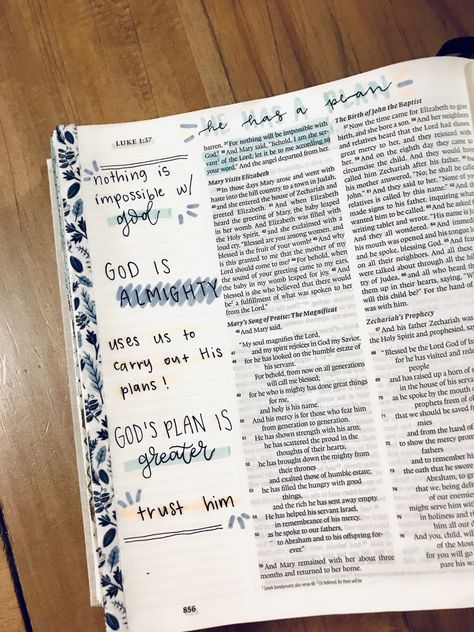 he has a plan
HE HAS A PLAN
LUKE 1:37
nothing is
impossible w/
god
GOD IS
ALMIGHTY
uses us to
carry out His
plans!
GOD'S PLAN IS
greater
trust him
856
barren. 37 For nothing will be impossible with
God." 38 And Mary said, "Behold, I am the ser-
vant of the Lord; let it be to me according to
your word." And the angel departed from her.
Mary Visits Elizabeth
39 In those days Mary arose and went with
haste into the hill country, to a town in Judah,
40 and she entered the house of Zechariah and
greeted Elizabeth. 41 And when Elizabeth
heard the greeting of Mary, the baby leaped
in her womb. And Elizabeth was filled with
the Holy Spirit, 42 and she exclaimed with a
loud cry, "Blessed are you among women, and
blessed is the fruit of your womb! 43 And why
is this granted to me that the mother of my
Lord should come to me? 44 For behold, when
the sound of your greeting came to my ears,
the baby in my womb leaped for joy. 45 And
blessed is she who believed that there would
be a fulfillment of what was spoken to her
from the Lord."
Mary's Song of Praise: The Magnificat
46 And Mary said,
"My soul magnifies the Lord,
47 and my spirit rejoices in God my Savior,
48 for he has looked on the humble estate of
his servant.
For behold, from now on all generations
will call me blessed;
49 for he who is mighty has done great things
for me,
and holy is his name.
50 And his mercy is for those who fear him
from generation to generation.
51 He has shown strength with his arm;
he has scattered the proud in the
thoughts of their hearts;
52 he has brought down the mighty from
their thrones
and exalted those of humble estate;
53 he has filled the hungry with good
things,
and the rich he has sent away empty.
54 He has helped his servant Israel,
in remembrance of his mercy,
55 as he spoke to our fathers,
to Abraham and to his offspring for-
ever."
56 And Mary remained with her about three
months and returned to her home.
The Birth of John the Baptist
57 Now the time came for Elizabeth to give
birth, and she bore a son. 58 And her neighbors
and relatives heard that the Lord had shown
great mercy to her, and they rejoiced with
her. 59 And on the eighth day they came to
circumcise the child. And they would have
called him Zechariah after his father, 60 but
his mother answered, "No; he shall be called
John." 61 And they said to her, "None of your
relatives is called by this name." 62 And they
made signs to his father, inquiring what he
wanted him to be called. 63 And he asked for a
writing tablet and wrote, "His name is John."
And they all wondered. 64 And immediately
his mouth was opened and his tongue loosed,
and he spoke, blessing God. 65 And fear came
on all their neighbors. And all these things
were talked about through all the hill country
of Judea, 66 and all who heard them laid
them up in their hearts, saying, "What then
will this child be?" For the hand of the Lord
was with him.
Zechariah's Prophecy
67 And his father Zechariah was filled with
the Holy Spirit and prophesied, saying,
68 "Blessed be the Lord God of Israel,
for he has visited and redeemed his
people
69 and has raised up a horn of
in the house of his servant
70 as he spoke by the mouth of
prophets from of old,
71 that we should be saved from
mies
and from the hand of all
72 to show the mercy promised
fathers
and to remember his
73 the oath that he swore
Abraham, to grant
74 that we, being delivered
of our enemies
might serve him without
75 in holiness and
him all our
76 And you, child, will
of the Most
for you will go
pare his